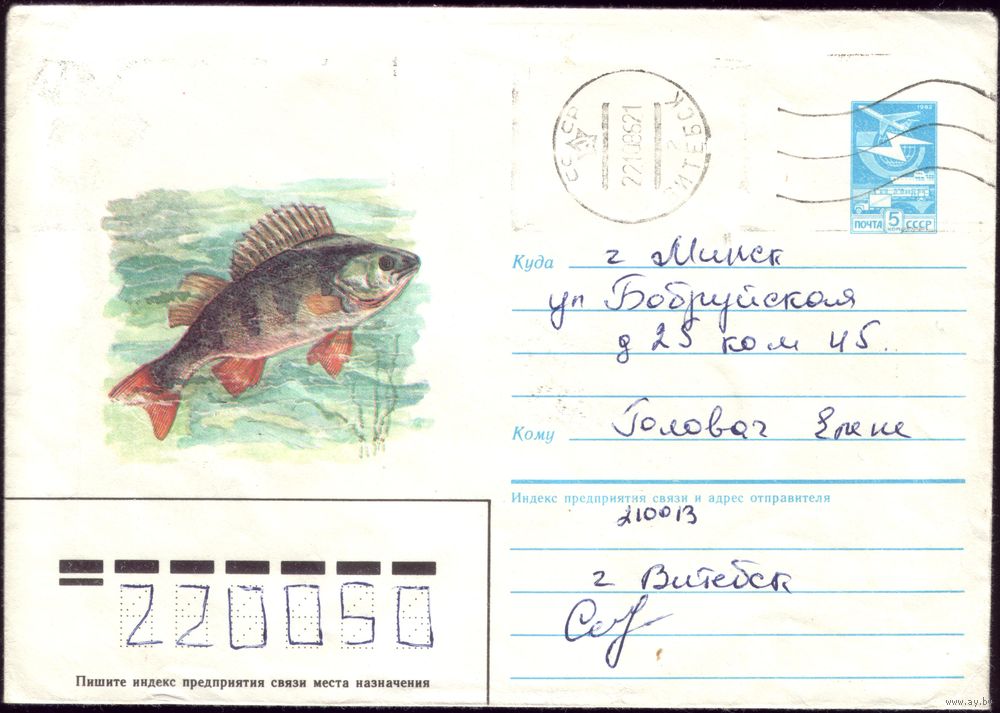 СССР
22108621
ВИТЕБСК
2
1982
ПОЧТА 5 СССР
коп
Куда г Минск
ул Бобруйская
д 25 ком 45.
Кому Головач Елене
Индекс предприятия связи и адрес отправителя
210013
г Витебск
220050
Пишите индекс предприятия связи места назначения
www.ay.by